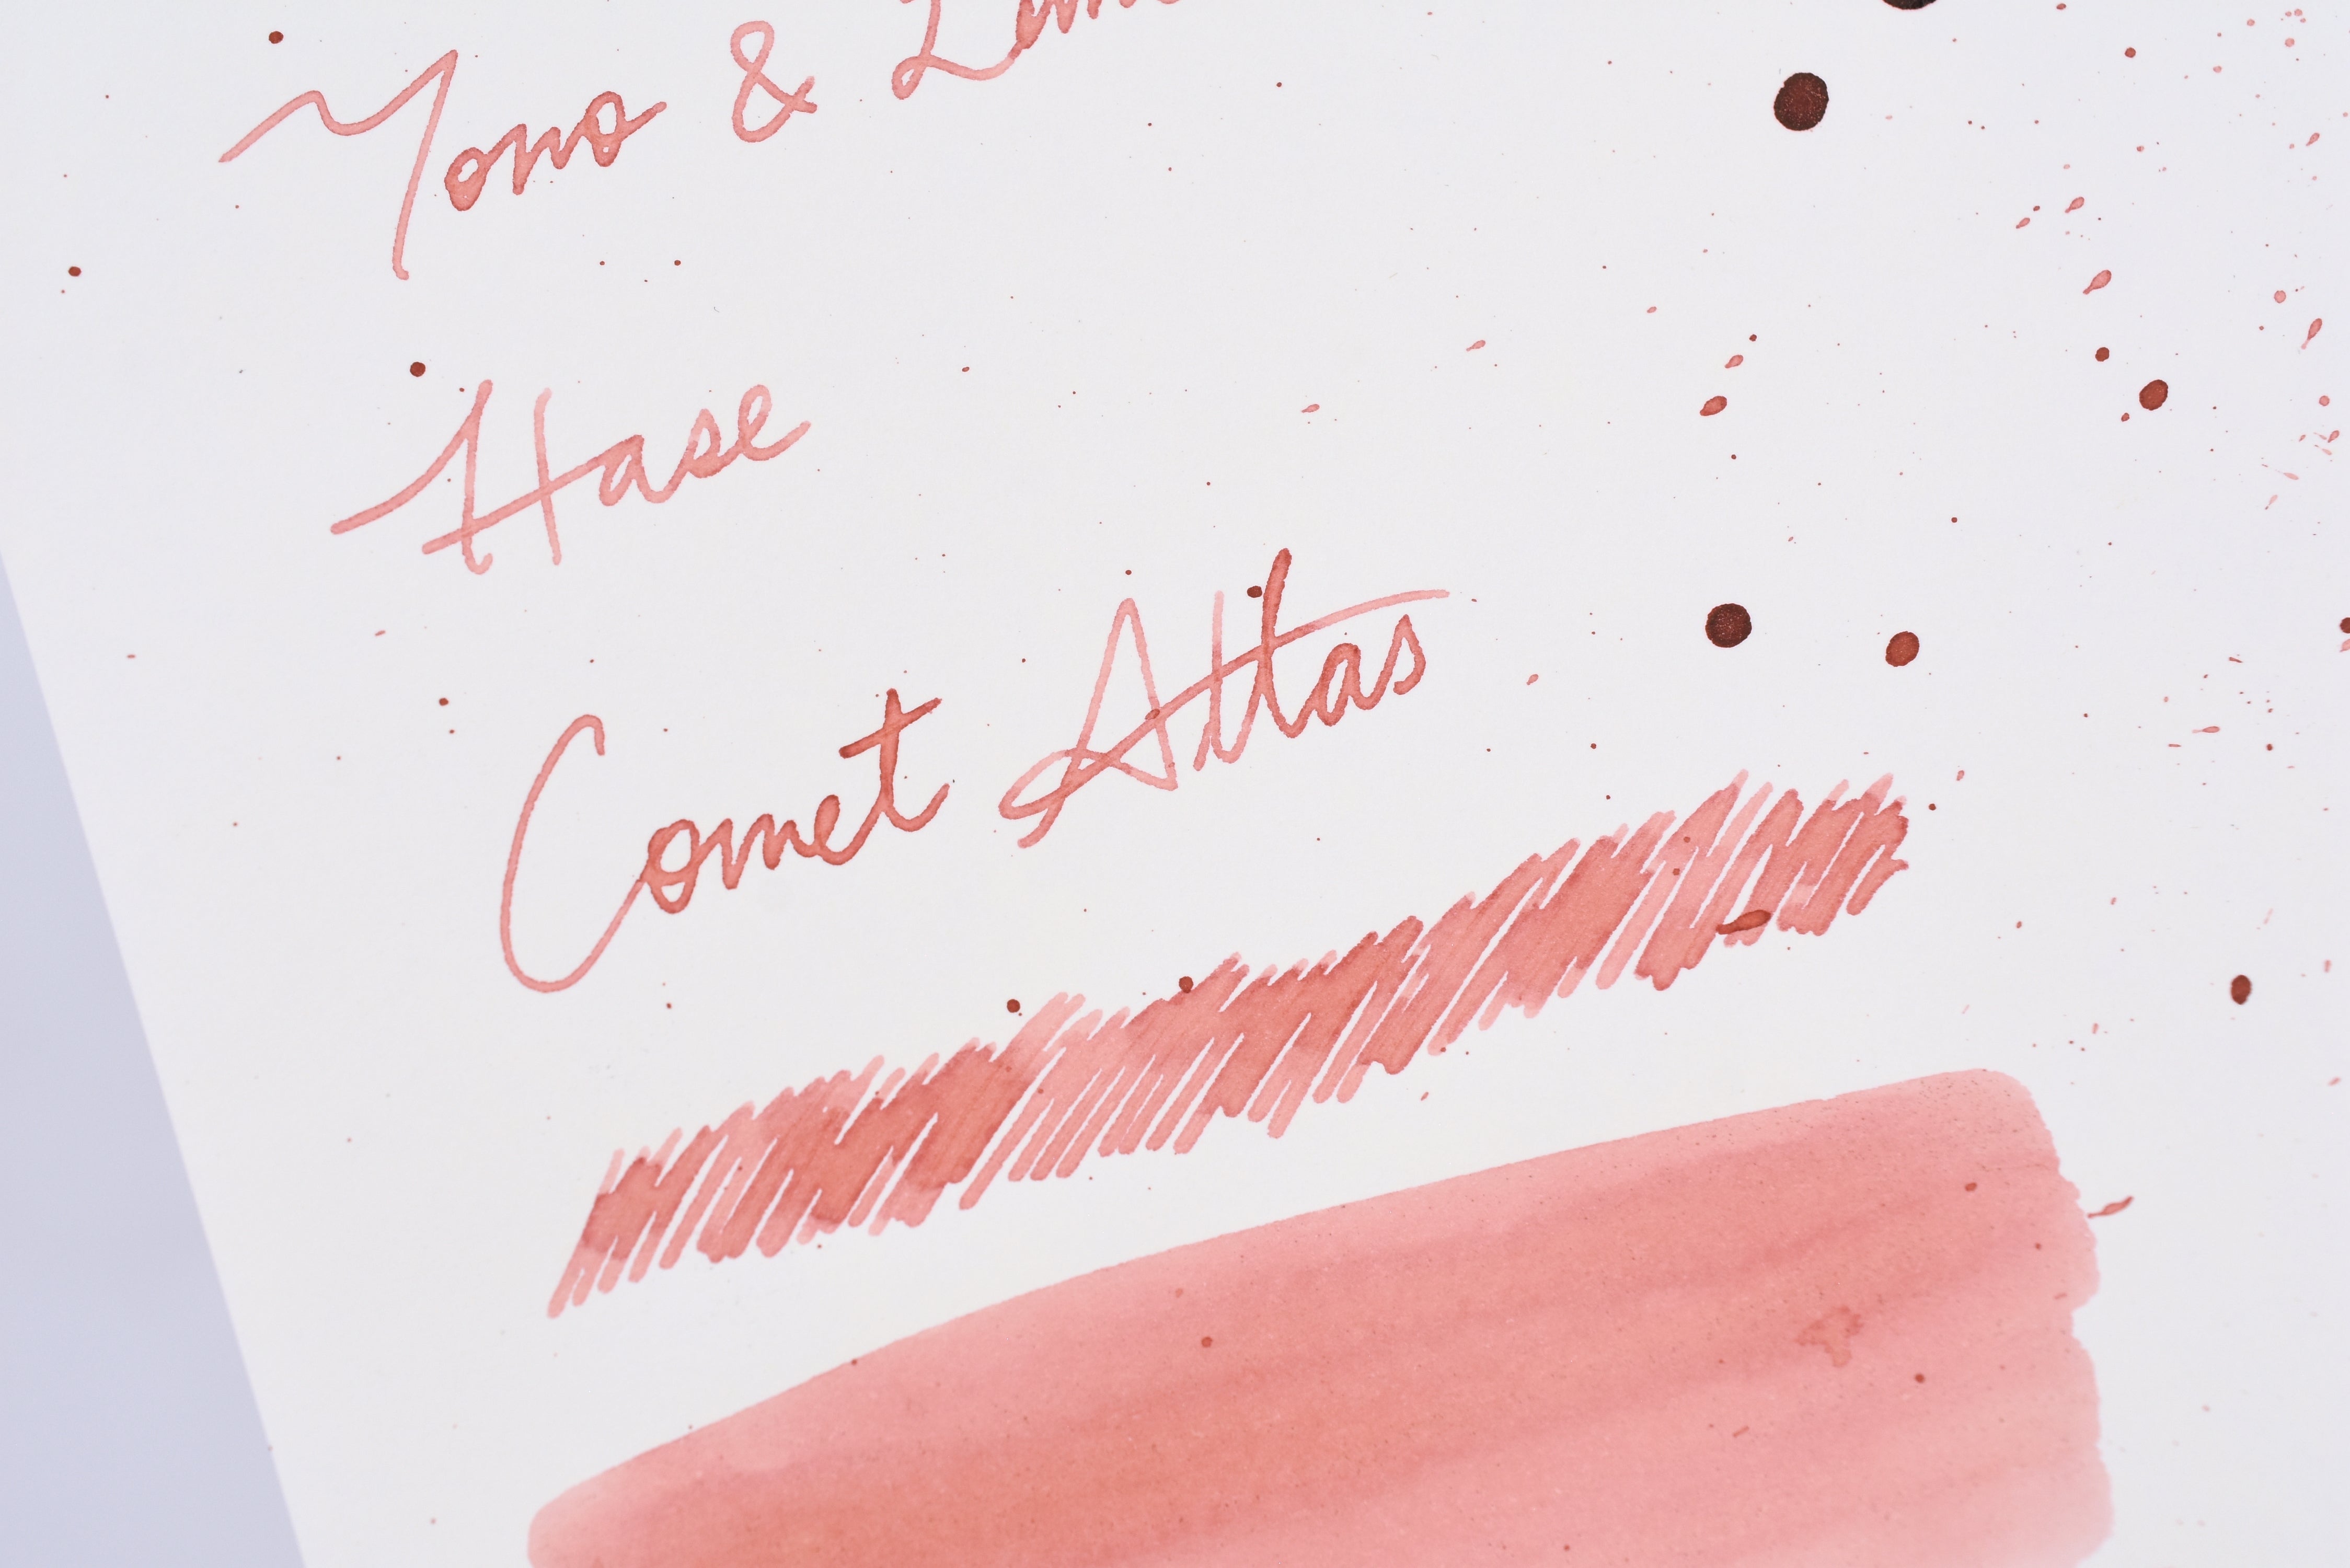 Yono &
Hase
Comet Atlas